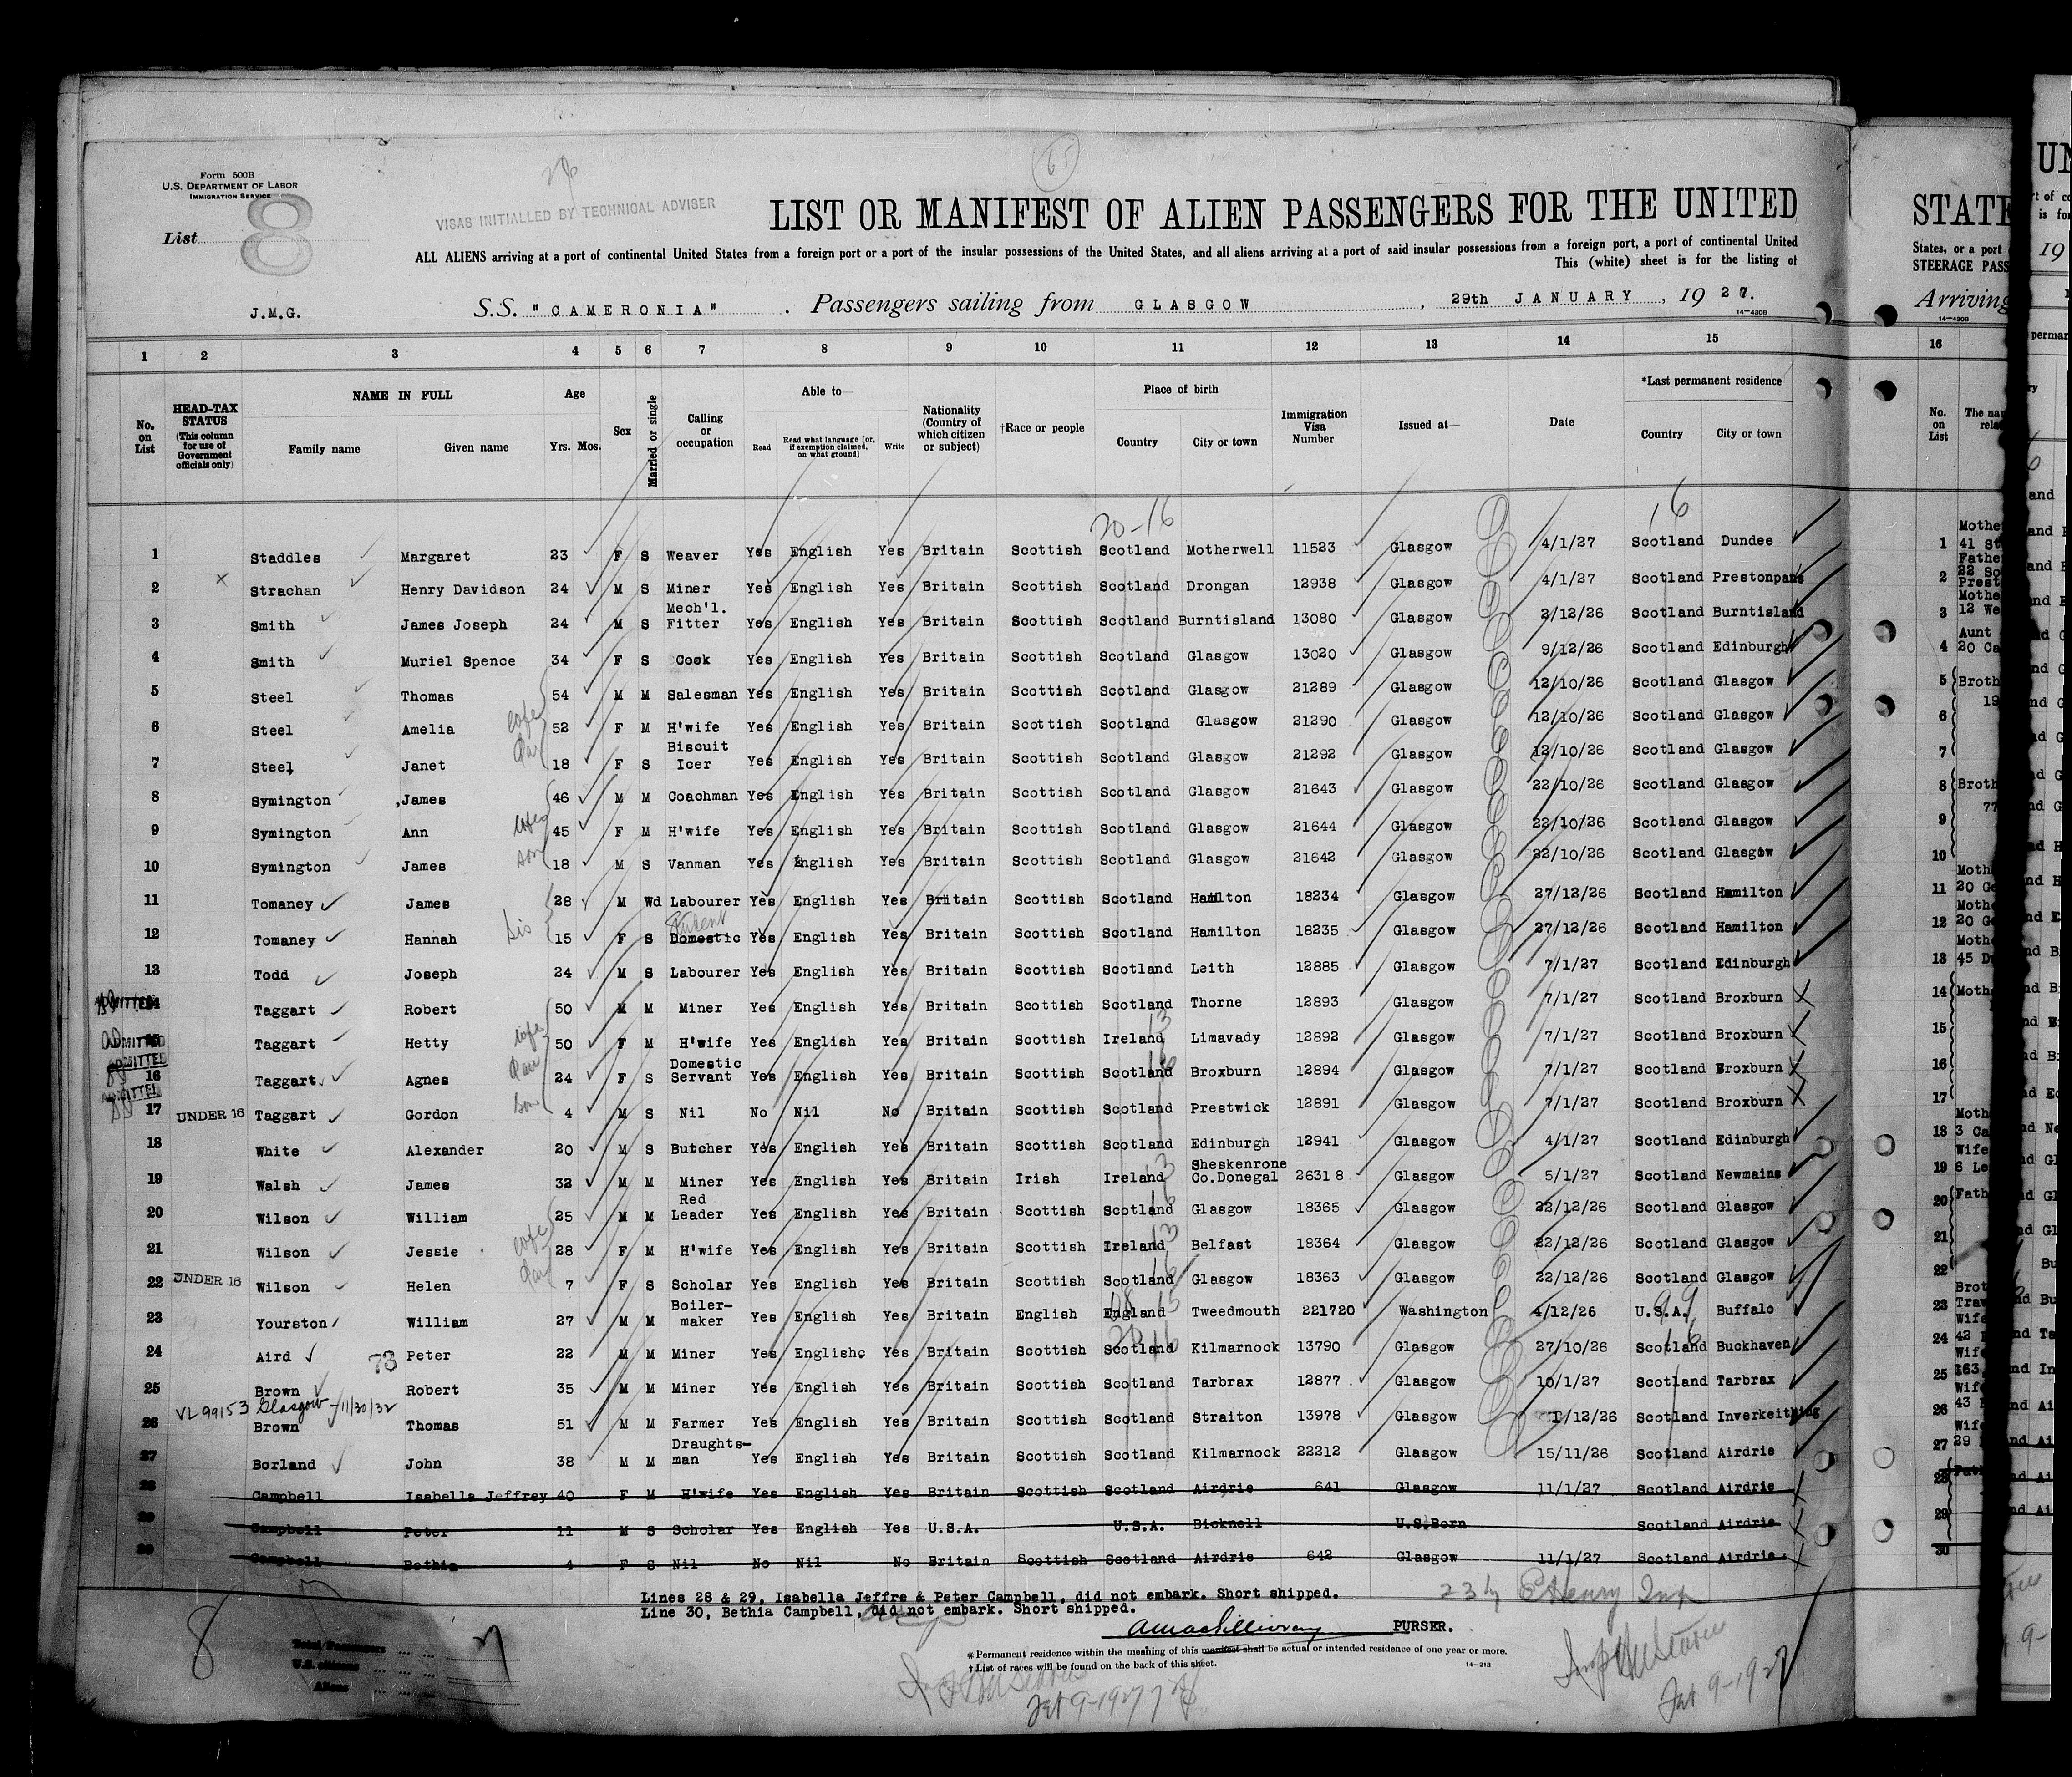 Form 500B
U.S. DEPARTMENT OF LABOR
IMMIGRATION SERVICE
List 8
65
VISAS INITIALLED BY TECHNICAL ADVISER
LIST OR MANIFEST OF ALIEN PASSENGERS FOR THE UNITED
ALL ALIENS arriving at a port of continental United States from a foreign port or a port of the insular possessions of the United States, and all aliens arriving at a port of said insular possessions from a foreign port, a port of continental United
This (white) sheet is for the listing of
J.M.G. S.S. "CAMERONIA" . Passengers sailing from GLASGOW , 29th JANUARY , 19 27.
14-430B
1 2 3 4 5 6 7 8 9 10 11 12 13 14 15
No. on List
HEAD-TAX STATUS (This column for use of Government officials only)
NAME IN FULL
Family name Given name
Age Yrs. Mos.
Sex
Married or single
Calling or occupation
Able to—
Read Read what language [or, if exemption claimed, on what ground] Write
Nationality (Country of which citizen or subject)
†Race or people
Place of birth
Country City or town
Immigration Visa Number
Issued at—
Date
*Last permanent residence
Country City or town
20-16 16
1 Staddles Margaret 23 F S Weaver Yes English Yes Britain Scottish Scotland Motherwell 11523 Glasgow 4/1/27 Scotland Dundee
2 x Strachan Henry Davidson 24 M S Miner Yes English Yes Britain Scottish Scotland Drongan 12938 Glasgow 4/1/27 Scotland Prestonpans
3 Smith James Joseph 24 M S Mech'l. Fitter Yes English Yes Britain Scottish Scotland Burntisland 13080 Glasgow 2/12/26 Scotland Burntisland
4 Smith Muriel Spence 34 F S Cook Yes English Yes Britain Scottish Scotland Glasgow 13020 Glasgow 9/12/26 Scotland Edinburgh
5 Steel Thomas 54 M M Salesman Yes English Yes Britain Scottish Scotland Glasgow 21289 Glasgow 12/10/26 Scotland Glasgow
6 Steel Amelia wife 52 F M H'wife Yes English Yes Britain Scottish Scotland Glasgow 21290 Glasgow 12/10/26 Scotland Glasgow
7 Steel Janet Dau 18 F S Biscuit Icer Yes English Yes Britain Scottish Scotland Glasgow 21292 Glasgow 12/10/26 Scotland Glasgow
8 Symington James 46 M M Coachman Yes English Yes Britain Scottish Scotland Glasgow 21643 Glasgow 22/10/26 Scotland Glasgow
9 Symington Ann wife 45 F M H'wife Yes English Yes Britain Scottish Scotland Glasgow 21644 Glasgow 22/10/26 Scotland Glasgow
10 Symington James son 18 M S Vanman Yes English Yes Britain Scottish Scotland Glasgow 21642 Glasgow 22/10/26 Scotland Glasgow
11 Tomaney James 28 M Wd Labourer Yes English Yes Britain Scottish Scotland Hamilton 18234 Glasgow 27/12/26 Scotland Hamilton
12 Tomaney Hannah sis 15 F S Student Domestic Yes English Yes Britain Scottish Scotland Hamilton 18235 Glasgow 27/12/26 Scotland Hamilton
13 Todd Joseph 24 M S Labourer Yes English Yes Britain Scottish Scotland Leith 12885 Glasgow 7/1/27 Scotland Edinburgh
ADMITTED 14 Taggart Robert 50 M M Miner Yes English Yes Britain Scottish Scotland Thorne 12893 Glasgow 7/1/27 Scotland Broxburn
ADMITTED 15 Taggart Hetty wife 50 F M H'wife Yes English Yes Britain Scottish Ireland 13 Limavady 12892 Glasgow 7/1/27 Scotland Broxburn
ADMITTED 16 Taggart Agnes Dau 24 F S Domestic Servant Yes English Yes Britain Scottish Scotland 16 Broxburn 12894 Glasgow 7/1/27 Scotland Broxburn
ADMITTED 17 UNDER 16 Taggart Gordon Son 4 M S Nil No Nil No Britain Scottish Scotland Prestwick 12891 Glasgow 7/1/27 Scotland Broxburn
18 White Alexander 20 M S Butcher Yes English Yes Britain Scottish Scotland Edinburgh 12941 Glasgow 4/1/27 Scotland Edinburgh
19 Walsh James 32 M M Miner Yes English Yes Britain Irish Ireland 13 Sheskenrone Co.Donegal 26318 Glasgow 5/1/27 Scotland Newmains
20 Wilson William 25 M M Red Leader Yes English Yes Britain Scottish Scotland 16 Glasgow 18365 Glasgow 22/12/26 Scotland Glasgow
21 Wilson Jessie wife 28 F M H'wife Yes English Yes Britain Scottish Ireland 13 Belfast 18364 Glasgow 22/12/26 Scotland Glasgow
22 UNDER 16 Wilson Helen Dau 7 F S Scholar Yes English Yes Britain Scottish Scotland 16 Glasgow 18363 Glasgow 22/12/26 Scotland Glasgow
23 Yourston William 27 M M Boiler-maker Yes English Yes Britain English England 15 Tweedmouth 221720 Washington 4/12/26 U.S.A. 99 Buffalo
24 Aird 73 Peter 22 M M Miner Yes English Yes Britain Scottish Scotland 16 Kilmarnock 13790 Glasgow 27/10/26 Scotland 16 Buckhaven
25 Brown Robert 35 M M Miner Yes English Yes Britain Scottish Scotland Tarbrax 12877 Glasgow 10/1/27 Scotland Tarbrax
VL 99153 Glasgow - 11/30/32
26 Brown Thomas 51 M M Farmer Yes English Yes Britain Scottish Scotland Straiton 13978 Glasgow /12/26 Scotland Inverkeithing
27 Borland John 38 M M Draughts-man Yes English Yes Britain Scottish Scotland Kilmarnock 22212 Glasgow 15/11/26 Scotland Airdrie
28 Campbell Isabella Jeffrey 40 F M H'wife Yes English Yes Britain Scottish Scotland Airdrie 641 Glasgow 11/1/27 Scotland Airdrie
29 Campbell Peter 11 M S Scholar Yes English Yes U.S.A. U.S.A. Bicknell U.S.Born Scotland Airdrie
30 Campbell Bethia 4 F S Nil No Nil No Britain Scottish Scotland Airdrie 642 Glasgow 11/1/27 Scotland Airdrie
Lines 28 & 29, Isabella Jeffre & Peter Campbell, did not embark. Short shipped.
Line 30, Bethia Campbell, did not embark. Short shipped.
PURSER.
8
Total Passengers ... ...
U.S. citizens ... ...
Aliens ... ...
*Permanent residence within the meaning of this manifest shall be actual or intended residence of one year or more.
†List of races will be found on the back of this sheet.
14-213
Feb 9-1927
Feb 9-1927
STATE
States, or a port
STEERAGE PASS
Arriving
14-430B
16
No. on List
The na
rela
1 Mothe
41 St
2 Father
22 So
Prest
3 Mothe
12 We
4 Aunt
20 Ca
5 Broth
19
6
7
8 Broth
77
9
10
11 Moth
20 Ge
12 Mothe
20 Ge
13 Mothe
45 D
14 Moth
15
16
17
18 Moth
3 Ca
19 Wife
6 Le
20 Fath
21
22
23 Brot
Trav
24 Wife
42
25 Wife
163
26 Wife
43
27 Wife
29
28 Fath
29
30